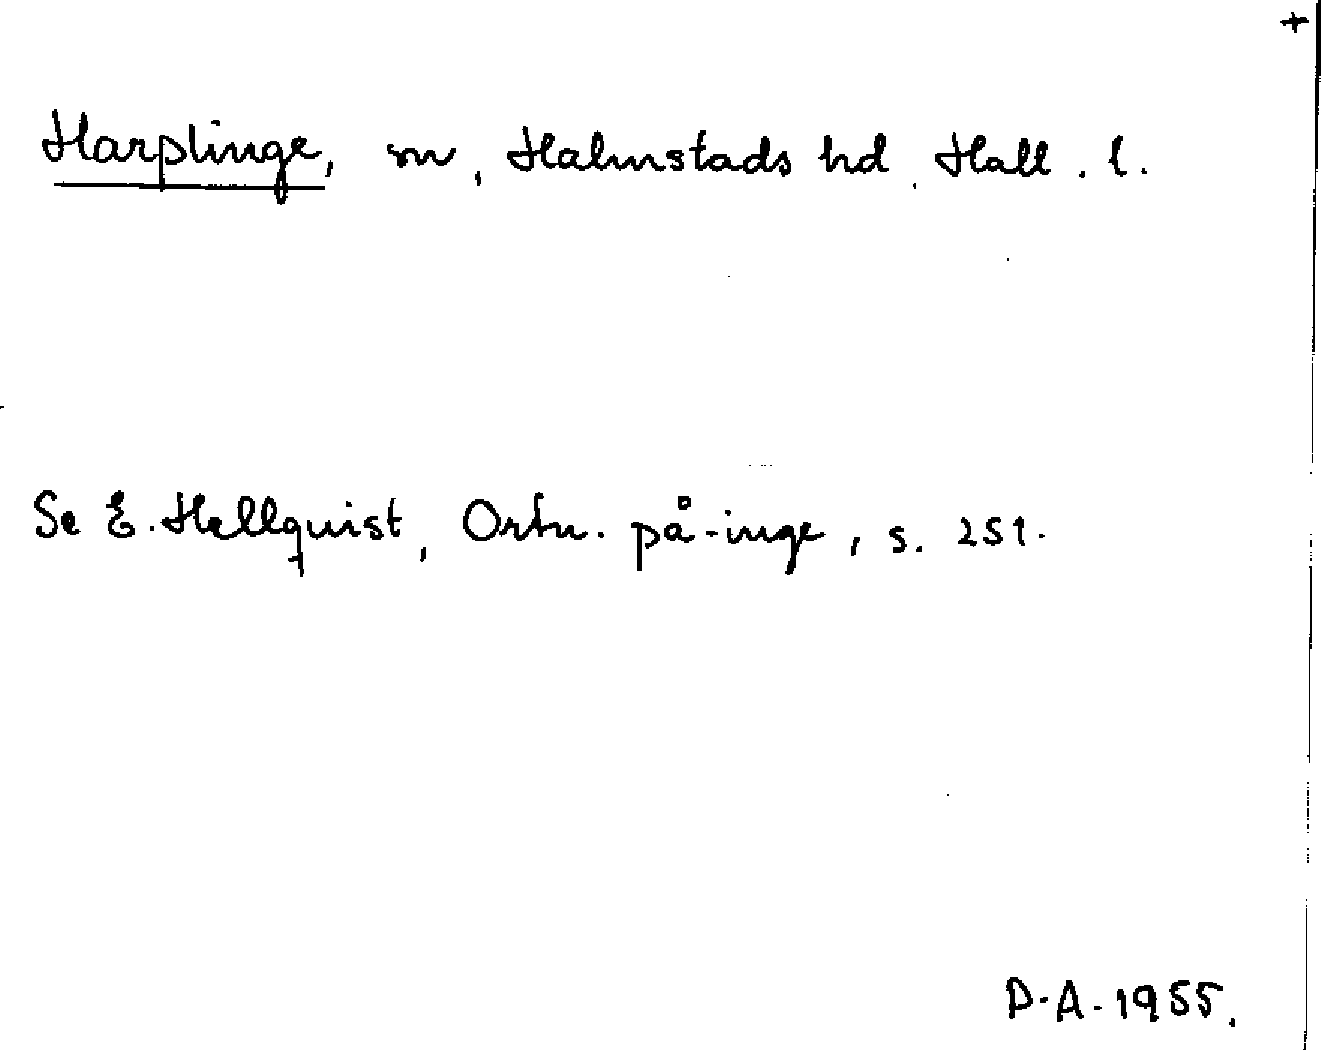 +
Harplinge, sn, Halmstads hd, Hall. l.
Se E. Hellquist, Ortn. på -inge, s. 251.
D.A. 1955.